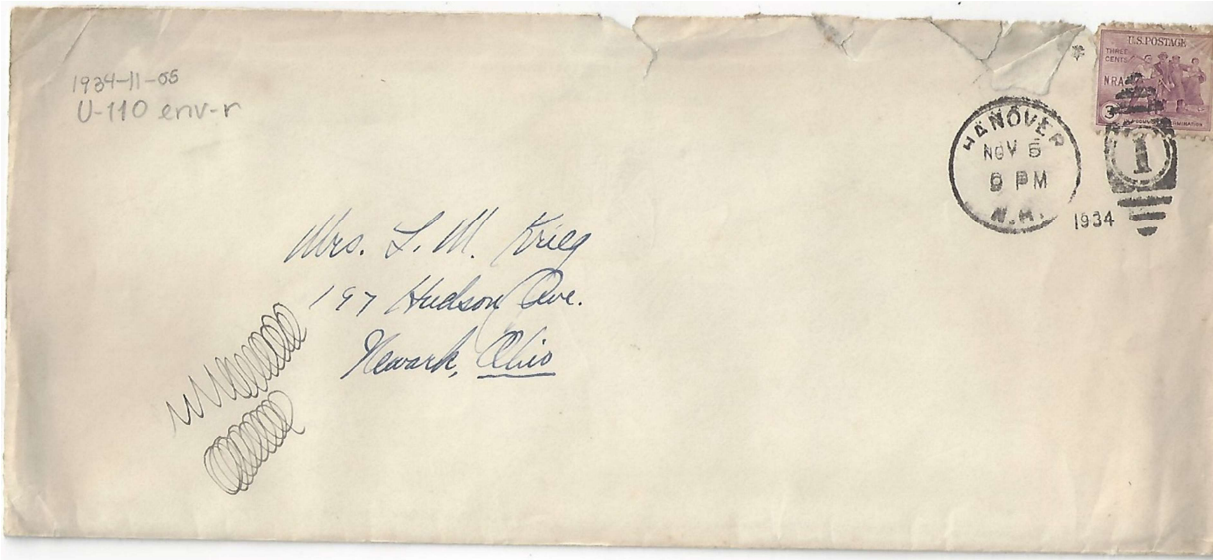 1934-11-05
U-110 env-r
U.S. POSTAGE
THREE
CENTS
NRA
HANOVER
NOV 5
PM
N.H.
1934
1
Mrs. L. M. Krieg
197 Hudson Ave.
Newark, Ohio